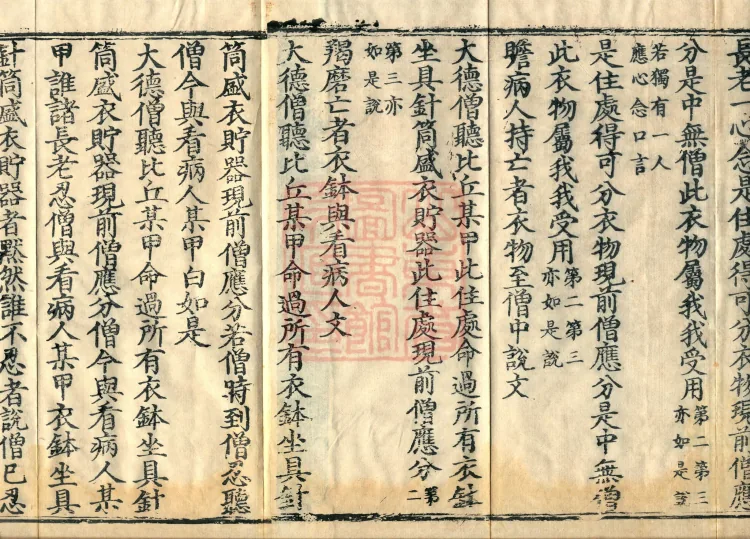 長老一心念是住處得可分衣物現前僧應
分是中無僧此衣物屬我我受用第二第三亦如是說
若獨有一人
應心念口言
是住處得可分衣物現前僧應分是中無僧
此衣物屬我我受用第二第三亦如是說
瞻病人持亡者衣物至僧中說文
大德僧聽比丘某甲此住處命過所有衣鉢
坐具針筒盛衣貯器此住處現前僧應分第二
第三亦
如是說
羯磨亡者衣鉢與看病人文
大德僧聽比丘某甲命過所有衣鉢坐具針
筒盛衣貯器現前僧應分若僧時到僧忍聽
僧今與看病人某甲白如是
大德僧聽比丘某甲命過所有衣鉢坐具針
筒盛衣貯器現前僧應分僧今與看病人某
甲誰諸長老忍僧與看病人某甲衣鉢坐具
針筒盛衣貯器者默然誰不忍者說僧已忍